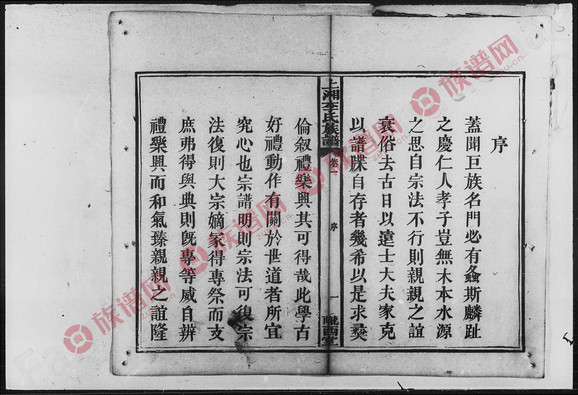 序
蓋聞巨族名門必有螽斯麟趾
之慶仁人孝子豈無木本水源
之思自宗法不行則親親之誼
衰俗去古日以遠士大夫家克
以譜牒自存者幾希以是求彜
上湘李氏族譜
卷一
序
一
隴西堂
倫叙禮樂興其可得哉此學古
好禮動作有關於世道者所宜
究心也宗譜明則宗法可復宗
法復則大宗嫡家得專祭而支
庶弗得與典則旣專等威自辨
禮樂興而和氣臻親親之誼隆
族谱网
族谱网
族谱网
族谱网
族谱网